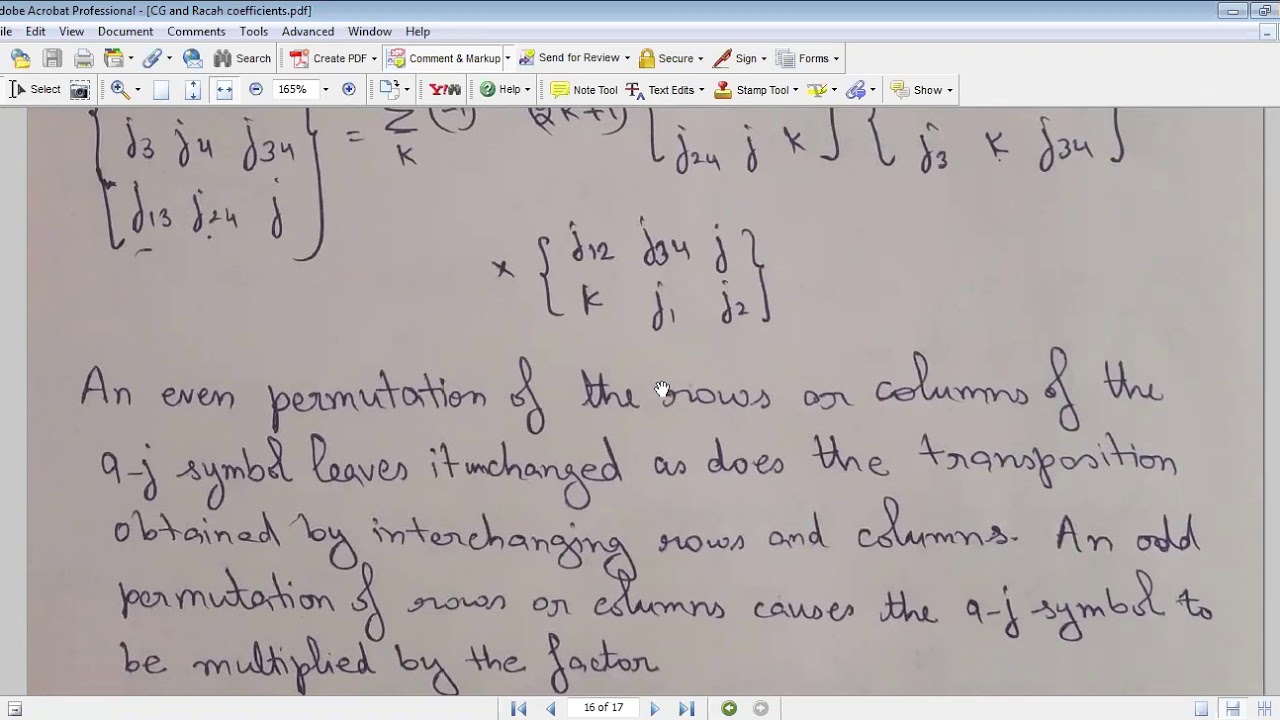 dobe Acrobat Professional - [CG and Racah coefficients.pdf]
ile Edit View Document Comments Tools Advanced Window Help
Search Create PDF Comment & Markup Send for Review Secure Sign Forms
Select 165% Y! Help Note Tool Text Edits Stamp Tool Show
j3 j4 j34 = Σ (-1) (2K+1) [ j24 j K ] { j3 K j34 }
K
j13 j24 j
x { j12 j34 j }
K j1 j2
An even permutation of the rows or columns of the
9-j symbol leaves it unchanged as does the transposition
obtained by interchanging rows and columns. An odd
permutation of rows or columns causes the 9-j symbol to
be multiplied by the factor
16 of 17